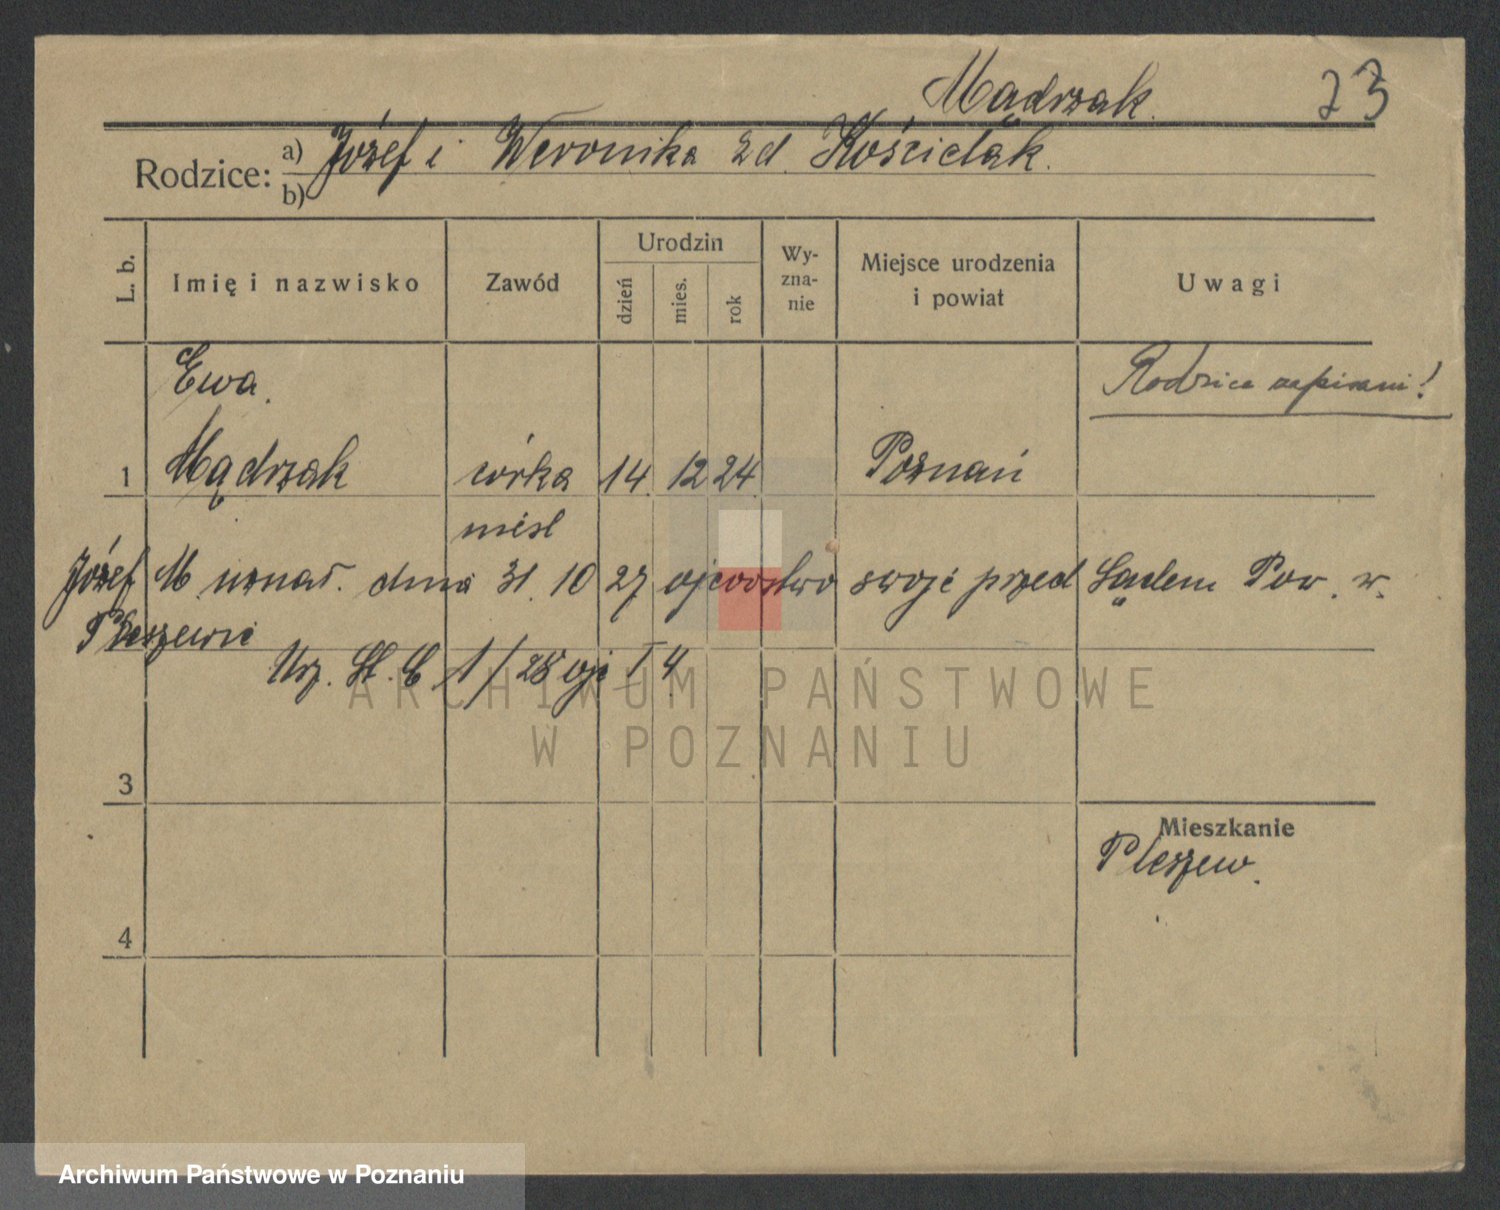 Mądrzak. 73
Rodzice: a) Józef i Weronika zd. Kościelak.
b)
L. b. Imię i nazwisko Zawód Urodzin dzień mies. rok Wy-zna-nie Miejsce urodzenia i powiat Uwagi
Ewa. Rodzice zapisani!
1 Mądrzak córka 14. 12 24. Poznań
nieśl
Józef M uznał. dnia 31. 10 27 ojcowstwo swoje przed Sądem Pow. w.
Pleszewie
Urz. St. C 1/28 ojc I 4
3
Mieszkanie
Pleszew.
4
ARCHIWUM PAŃSTWOWE
W POZNANIU
Archiwum Państwowe w Poznaniu